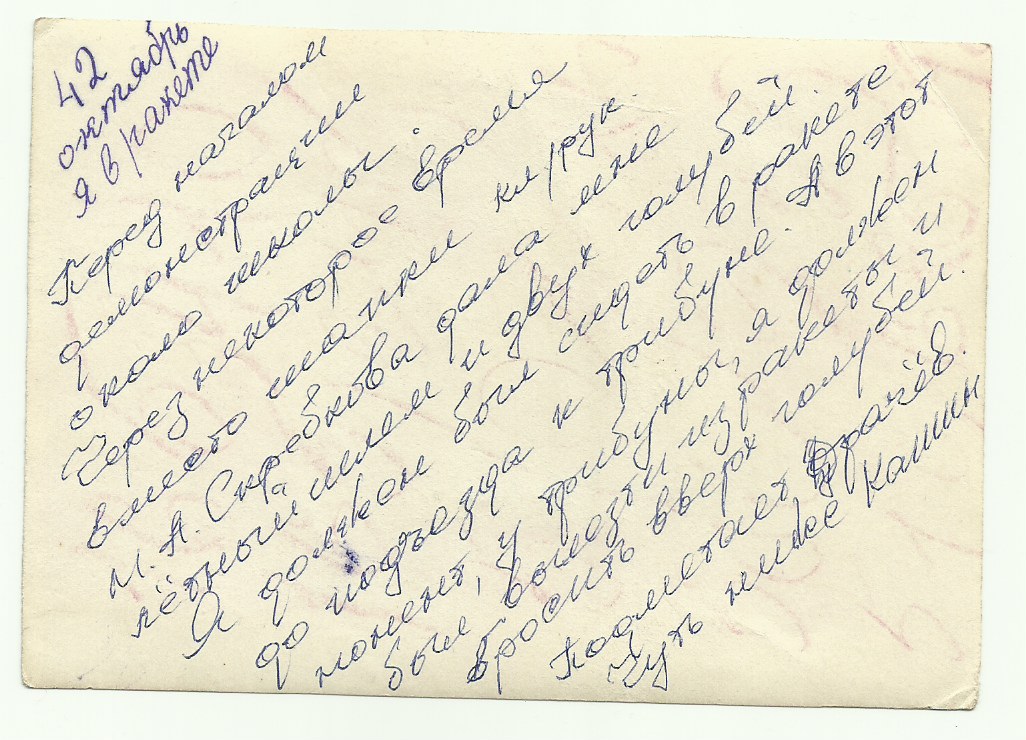 42
октябрь
я в ракете
Перед началом
демонстрации
около школы.
Через некоторое время
вместо шапки кл/рук.
М. А. Скребкова дала мне
лётный шлем и двух голубей.
Я должен был сидеть в ракете
до подъезда к трибуне. А в этот
момент, у трибуны, я должен
был вылезти из ракеты и
бросить вверх голубей.
Подметает Драчёв.
Чуть ниже Кашин